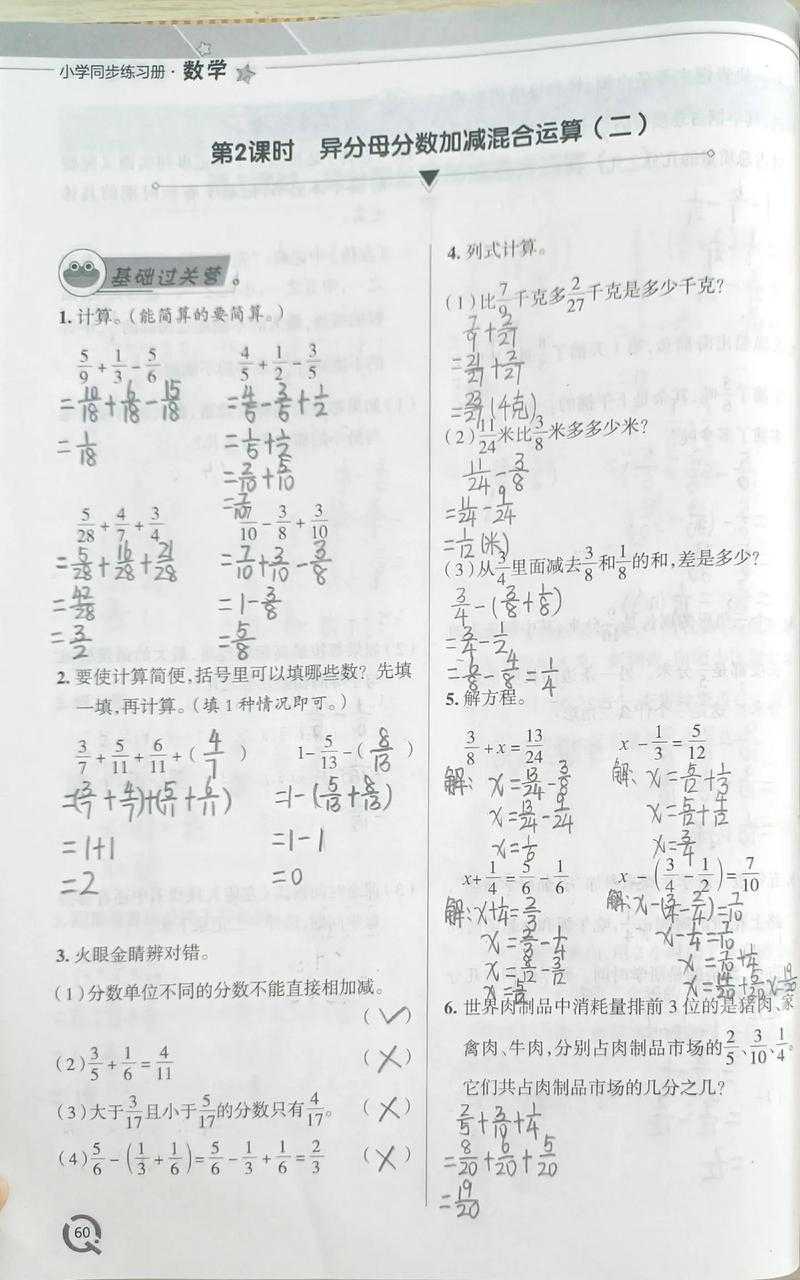 小学同步练习册·数学
第2课时 异分母分数加减混合运算(二)
基础过关营。
1.计算。(能简算的要简算。)
5/9+1/3-5/6 4/5+1/2-3/5
=10/18+6/18-15/18 =4/5-3/5+1/2
=1/18 =1/5+1/2
=2/10+5/10
=7/10
5/28+4/7+3/4 7/10-3/8+3/10
=5/28+16/28+21/28 =7/10+3/10-3/8
=42/28 =1-3/8
=3/2 =5/8
2.要使计算简便,括号里可以填哪些数? 先填
一填,再计算。(填1种情况即可。)
3/7+5/11+6/11+(4/7) 1-5/13-(8/13)
=(3/7+4/7)+(5/11+6/11) =1-(5/13+8/13)
=1+1 =1-1
=2 =0
3.火眼金睛辨对错。
(1)分数单位不同的分数不能直接相加减。
(✓)
(2)3/5+1/6=4/11 (×)
(3)大于3/17且小于5/17的分数只有4/17。 (×)
(4)5/6-(1/3+1/6)=5/6-1/3+1/6=2/3 (×)
60
4.列式计算。
(1)比7/9千克多2/27千克是多少千克?
7/9+2/27
=21/27+2/27
=23/27(千克)
(2)11/24米比3/8米多多少米?
11/24-3/8
=11/24-9/24
=1/12(米)
(3)从3/4里面减去3/8和1/8的和,差是多少?
3/4-(3/8+1/8)
=3/4-1/2
=6/8-4/8=1/4
5.解方程。
3/8+x=13/24 x-1/3=5/12
解:x=13/24-3/8 解:x=5/12+1/3
x=13/24-9/24 x=5/12+4/12
x=1/6 x=3/4
x+1/4=5/6-1/6 x-(3/4-1/2)=7/10
解:x+1/4=2/3 解:x-(3/4-2/4)=7/10
x=2/3-1/4 x-1/4=7/10
x=8/12-3/12 x=7/10+1/4
x=5/12 x=14/20+5/20 x=19/20
6.世界肉制品中消耗量排前3位的是猪肉、家
禽肉、牛肉,分别占肉制品市场的2/5、3/10、1/4。
它们共占肉制品市场的几分之几?
2/5+3/10+1/4
=8/20+6/20+5/20
=19/20